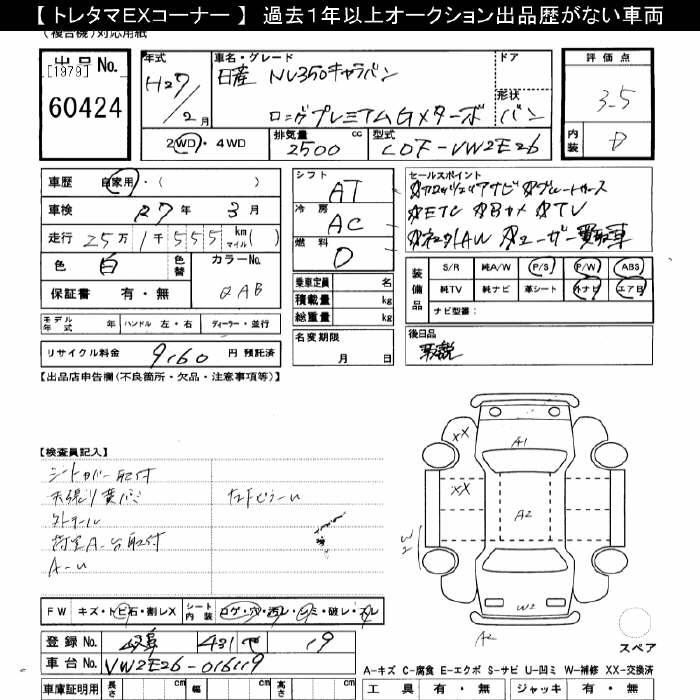 【 トレタマEXコーナー 】 過去1年以上オークション出品歴がない車両
(複合機)対応用紙
出品 No.
[1979]
60424
年式
H27/2月
車名・グレード
日産 NV350キャラバン
ロングプレミアムGXターボ
ドア
形状
バン
2WD・4WD
排気量
2500 cc
型式
CDF-VW2E26
評価点
3.5
内装
D
車歴 自家用・( )
車検 R7年 3月
走行 25万1千555 km マイル( )
色 白
色替
カラーNo.
QAB
保証書 有・無
モデル年式 年 ハンドル 左・右 ディーラー・並行
リサイクル料金 9160 円 預託済
シフト AT
冷房 AC
燃料 D
乗車定員 名
積載量 kg
総重量 kg
名変期限
月 日
セールスポイント
☆ETC ☆Bカメ ☆TV
☆ユーザー買取車
装備品
S/R 純A/W P/S P/W ABS
純TV 純ナビ 革シート 外ナビ エアB
ナビ型番:
後日品
取説
【出品店申告欄(不良箇所・欠品・注意事項等)】
【検査員記入】
シートカバー取付
A-U
FW キズ・トビ石・割レX
シート内装 コゲ・穴・汚レ・シミ・破レ・スレ
登録 No. 岐阜 431 て 19
車台 No. VW2E26-016119
車庫証明用 長さ cm 幅 cm 高さ cm
XX
A1
XX
A2
W2
W2
A2
スペア
A-キズ C-腐食 E-エクボ S-サビ U-凹ミ W-補修 XX-交換済
工具 有・無 ジャッキ 有・無